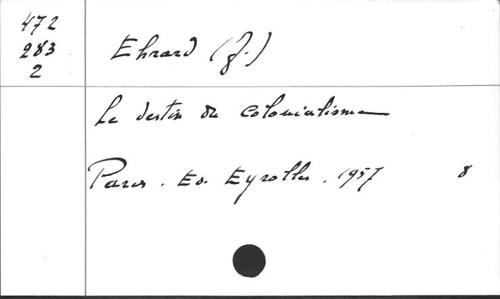 472
283
2
Ehrard (J.)
Le destin du colonialisme
Paris. Ed. Eyrolles. 1957 8